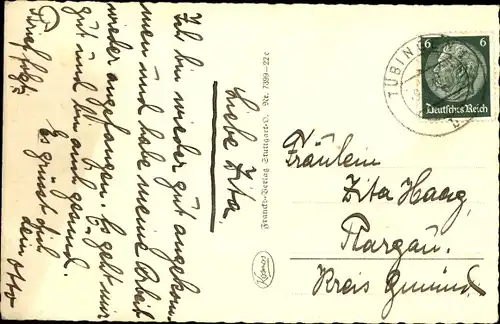 Liebe Zita.
Ich bin wieder gut angekom-
men und habe meine Arbeit
wieder angefangen. Es geht mir
gut und bin auch gesund.
Brief folgt
Es grüsst dich
dein Otto
Franckh-Verlag Stuttgart-O. Nr. 7399-22c
Kosmos
TÜBINGEN
6 6
Deutsches Reich
Fräulein
Zita Haag,
Kreis Gmünd